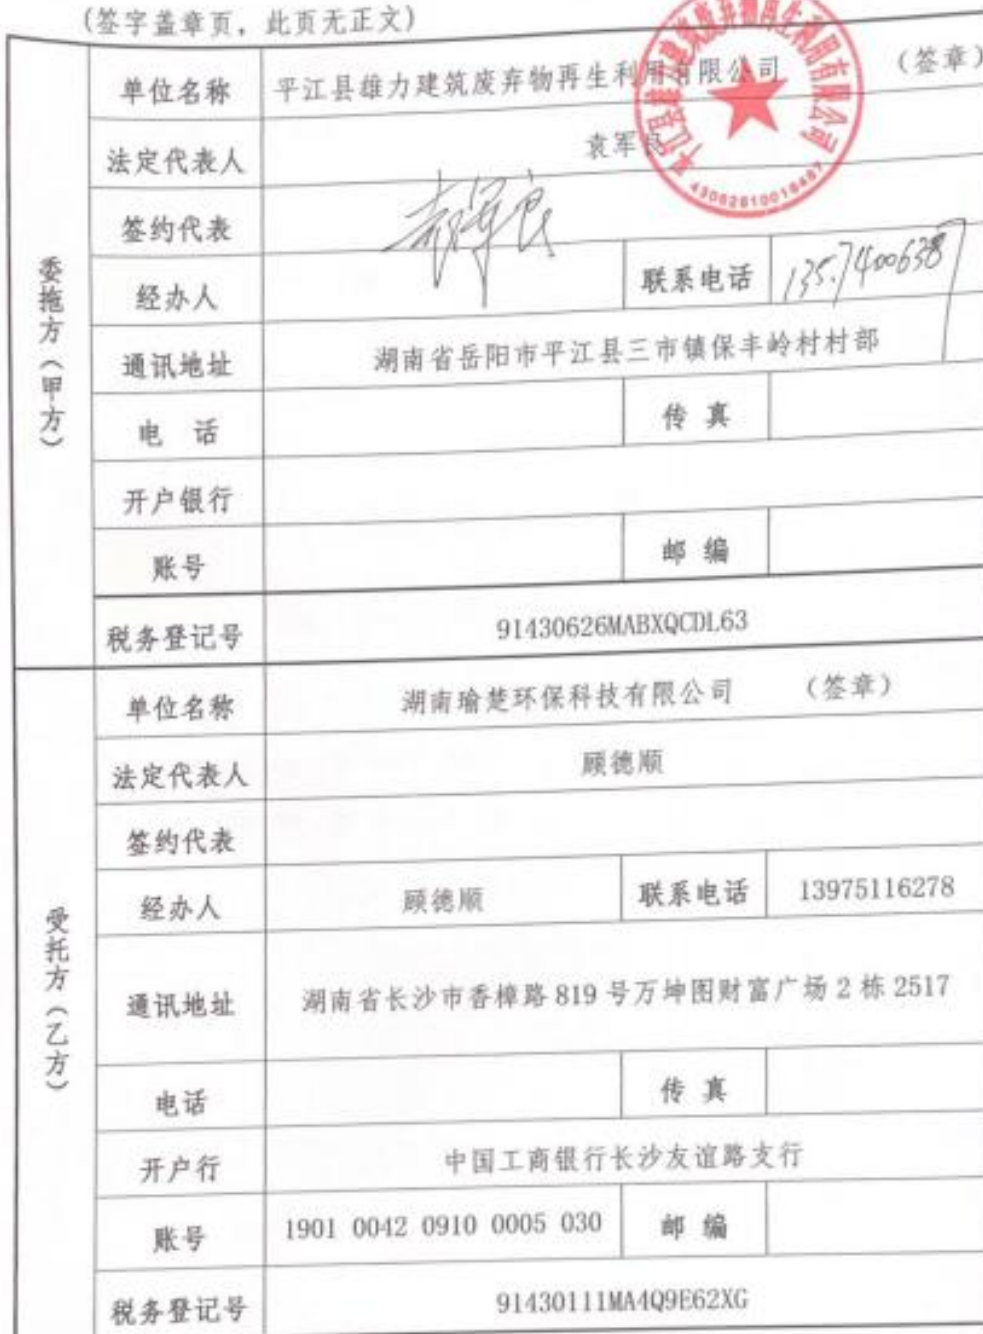 (签字盖章页，此页无正文)
委拖方（甲方）
单位名称 平江县雄力建筑废弃物再生利用有限公司 （签章）
法定代表人 袁军良
签约代表
经办人 联系电话
通讯地址 湖南省岳阳市平江县三市镇保丰岭村村部
电 话 传 真
开户银行
账号 邮 编
税务登记号 91430626MABXQCDL63
受托方（乙方）
单位名称 湖南瑜楚环保科技有限公司 （签章）
法定代表人 顾德顺
签约代表
经办人 顾德顺 联系电话 13975116278
通讯地址 湖南省长沙市香樟路 819 号万坤图财富广场 2 栋 2517
电话 传 真
开户行 中国工商银行长沙友谊路支行
账号 1901 0042 0910 0005 030 邮 编
税务登记号 91430111MA4Q9E62XG